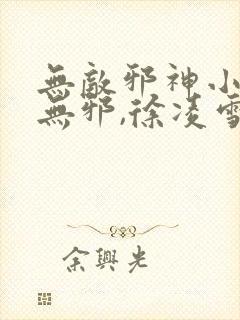 無敵邪神小
無邪,徐凌雪
余興光